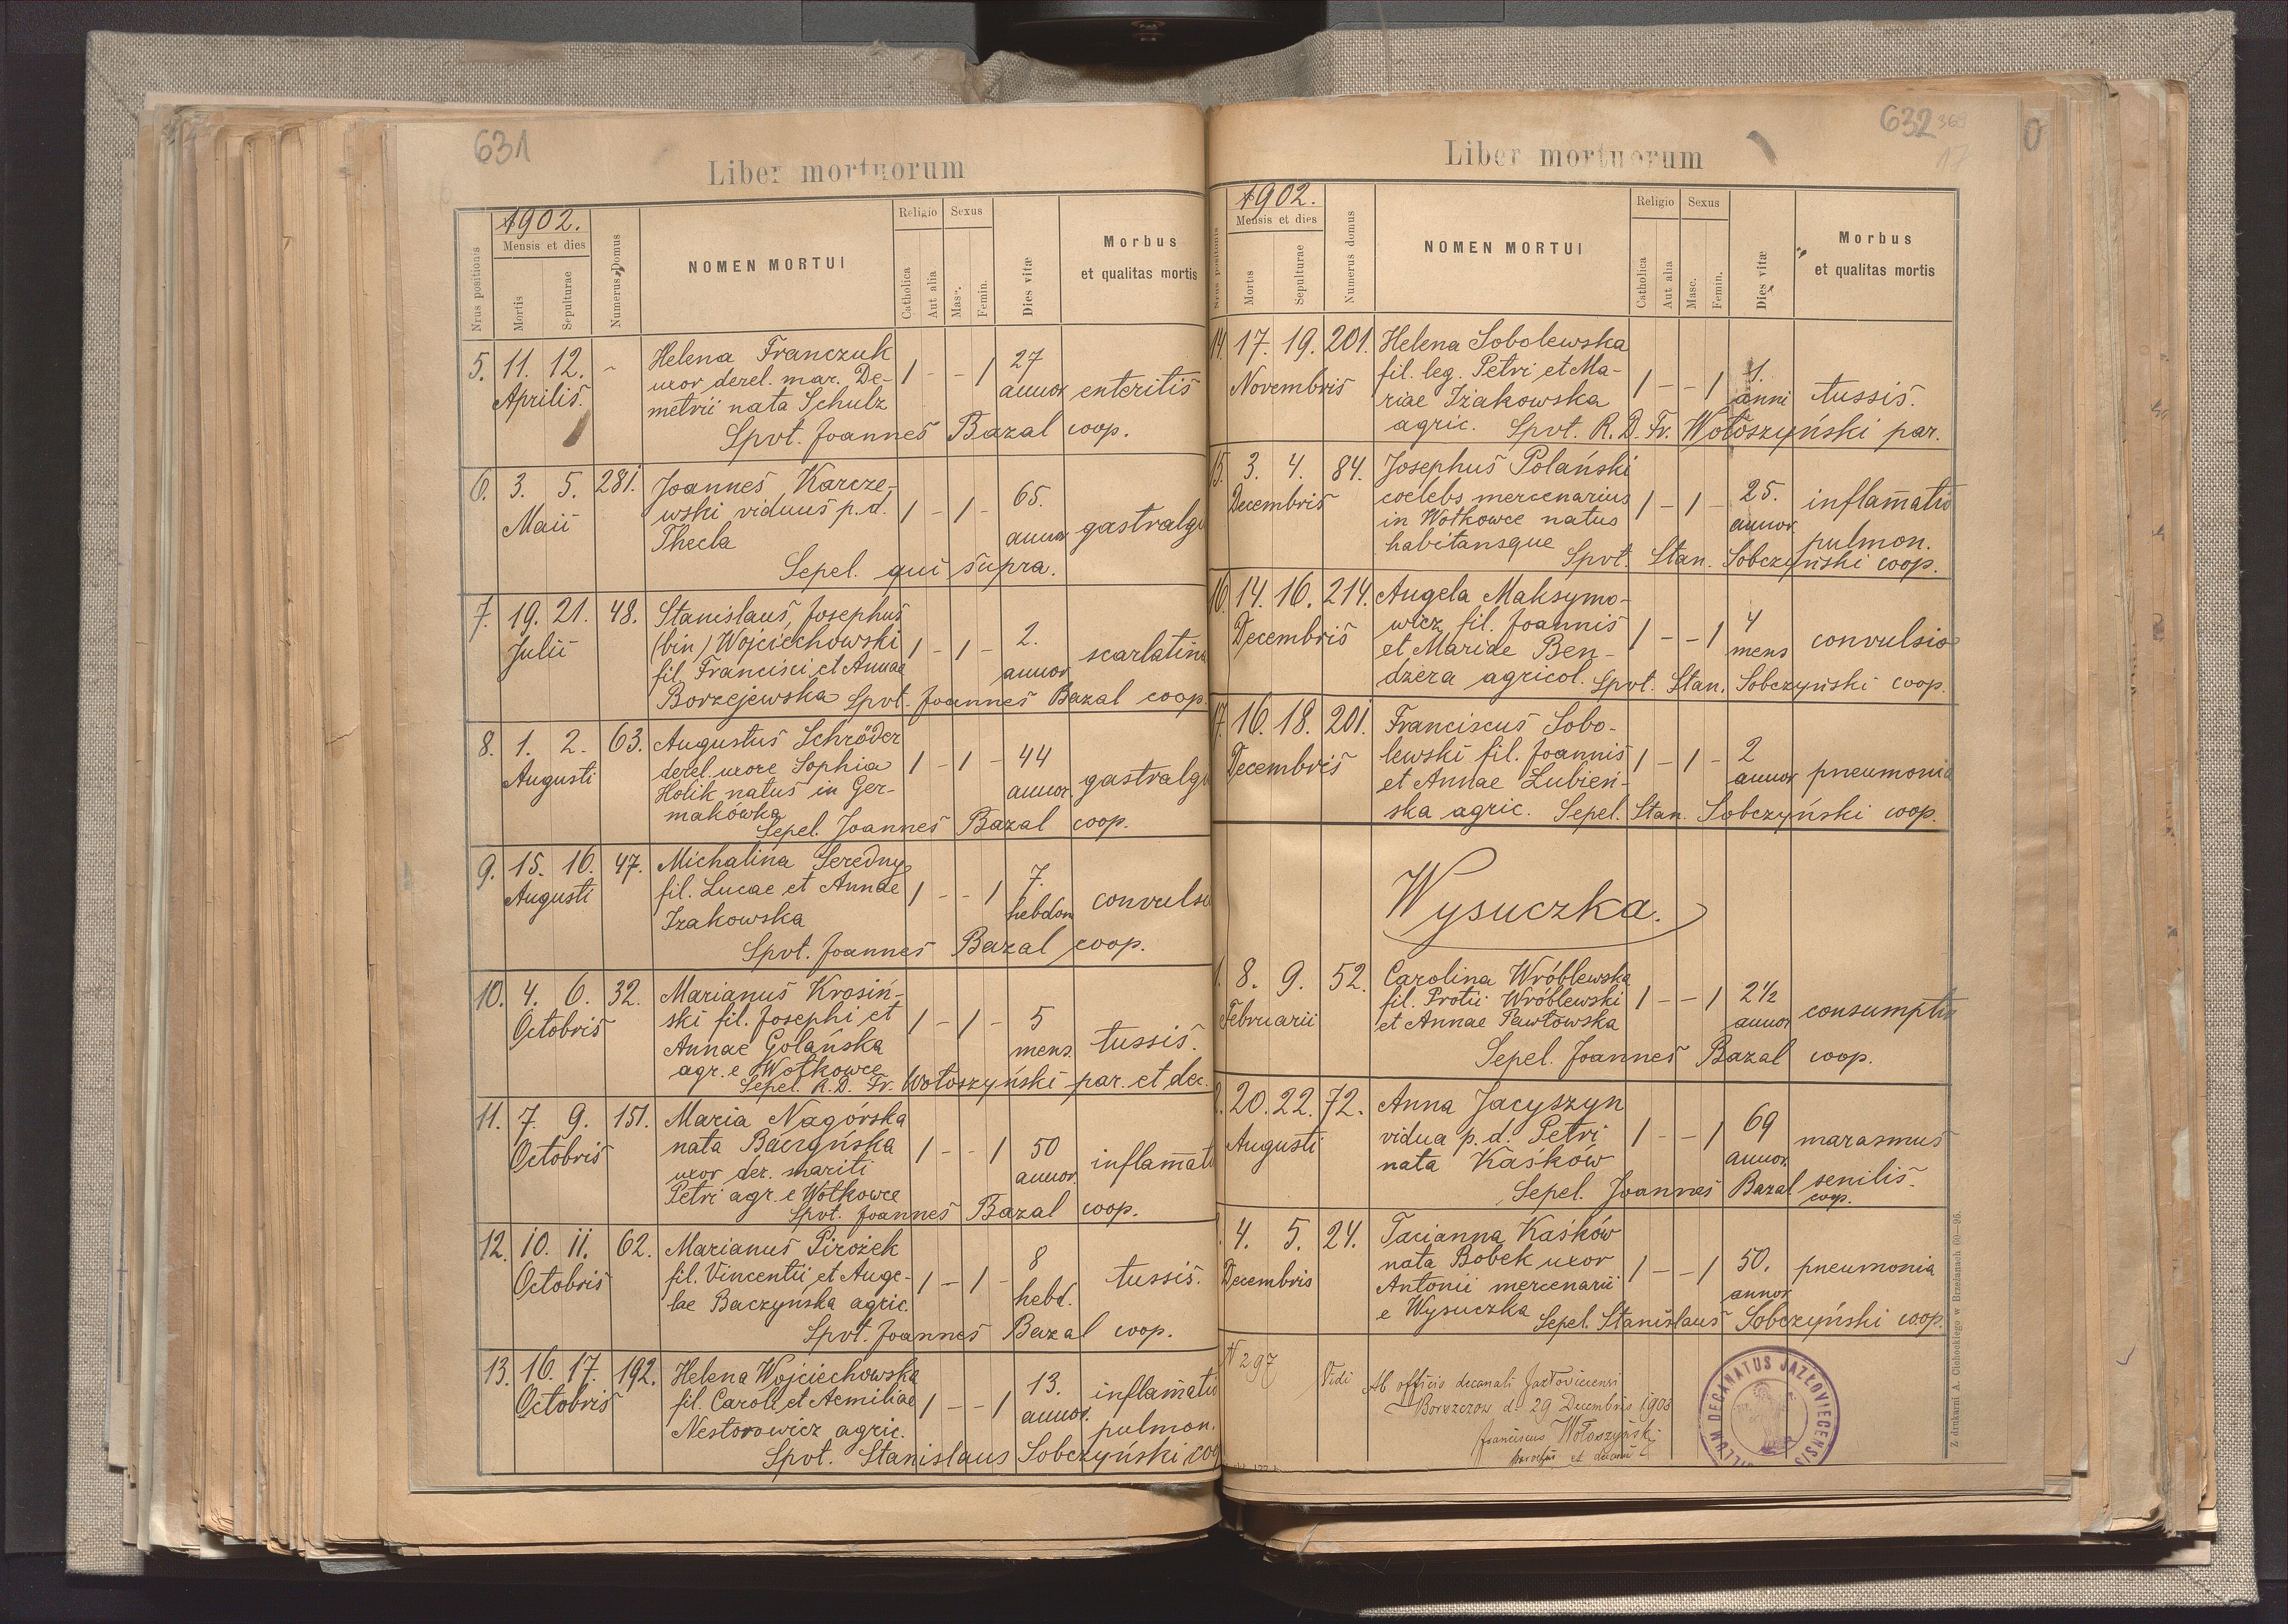 631
Liber mortuorum
1902.
Nrus positionis
Mensis et dies
Mortis
Sepulturae
Numerus Domus
NOMEN MORTUI
Religio
Catholica
Aut alia
Sexus
Masc.
Femin.
Dies vitæ
Morbus
et qualitas mortis
5. 11. 12. - Helena Franczuk 1 - - 1 27
Aprilis. uxor derel. mar. De- annor enteritis
metrii nata Schulz
Spvt. Joannes Bazal coop.
6. 3. 5. 281. Joannes Karcze- 65.
Maii wski viduus p.d. 1 - 1 - annor gastralgi
Thecla
Sepel. qui supra.
7. 19. 21. 48. Stanislaus, Josephus
Julii (bin) Wojciechowski 1 - 1 - 2. scarlatina
fil. Francisci et Annae annor
Borzejewska Spvt. Joannes Bazal coop.
8. 1. 2. 63. Augustus Schröder
Augusti derel. uxore Sophia 1 - 1 - 44
Holik natus in Ger- annor. gastralgi
makówka
Sepel. Joannes Bazal coop.
9. 15. 16. 47. Michalina Seredny
Augusti fil. Lucae et Annae 1 - - 1 7.
Izakowska hebdom convulsi
Spvt. Joannes Bazal coop.
10. 4. 6. 32. Marianus Krosiń-
Octobris ski fil. Josephi et 1 - 1 - 5
Annae Golańska mens. tussis.
agr. e Wołkowce
Sepel. R. D. Fr. Wołoszyński par. et dec.
11. 7. 9. 151. Maria Nagórska
Octobris nata Baczyńska 1 - - 1 50
uxor der. mariti annor. inflam̄at
Petri agr. e Wołkowce
Spvt. Joannes Bazal coop.
12. 10. 11. 62. Marianus Pirożek
Octobris fil. Vincentii et Ange- 1 - 1 - 8 tussis.
lae Baczyńska agric. hebd.
Spvt. Joannes Bazal coop.
13. 16. 17. 192. Helena Wojciechowska
Octobris fil. Caroli et Aemiliae 1 - - 1 13. inflam̄atio
Nestorowicz agric. annor. pulmon.
Spvt. Stanislaus Sobczyński coo
632 369
17
Liber mortuorum
1902.
Nrus positionis
Mensis et dies
Mortus
Sepulturae
Numerus domus
NOMEN MORTUI
Religio
Catholica
Aut alia
Sexus
Masc.
Femin.
Dies vitæ
Morbus
et qualitas mortis
14. 17. 19. 201. Helena Sobolewska
Novembris fil. leg. Petri et Ma- 1 - - 1 1.
riae Iżakowska anni tussis.
agric. Spvt. R. D. Fr. Wołoszyński par.
15. 3. 4. 84. Josephus Polański
Decembris coelebs mercenarius 1 - 1 - 25. inflam̄atio
in Wołkowce natus annor. pulmon.
habitansque Spvt. Stan. Sobczyński coop.
16. 14. 16. 214. Angela Maksymo-
Decembris wicz fil. Joannis 1 - - 1 4 convulsio
et Mariae Ben- mens
dżera agricol. Spvt. Stan. Sobczyński coop.
17. 16. 18. 201. Franciscus Sobo-
Decembris lewski fil. Joannis 1 - 1 - 2
et Annae Lubień- annor pneumonia
ska agric. Sepel. Stan. Sobczyński coop.
Wysuczka.
1. 8. 9. 52. Carolina Wróblewska
Februarii fil. Protii Wróblewski 1 - - 1 2½ consumptio
et Annae Pawłowska annor
Sepel. Joannes Bazal coop.
2. 20. 22. 72. Anna Jacyszyn
Augusti vidua p.d. Petri 1 - - 1 69 marasmus
nata Kaśków annor. senilis.
Sepel. Joannes Bazal coop.
4. 5. 24. Tacianna Kaśków
Decembris nata Bobek uxor 1 - - 1 50. pneumonia
Antonii mercenarii annor
e Wysuczka Sepel. Stanislaus Sobczyński coop.
N 297 Vidi
Ab officio decanali Jazłoviciensi
Borszczow d. 29 Decembris 1903
Franciscus Wołoszyński
parochus et decanus
SIGILLUM DECANATUS JAZŁOVIECENSIS
Z drukarni A. Cichockiego w Brzeżanach 60—95.